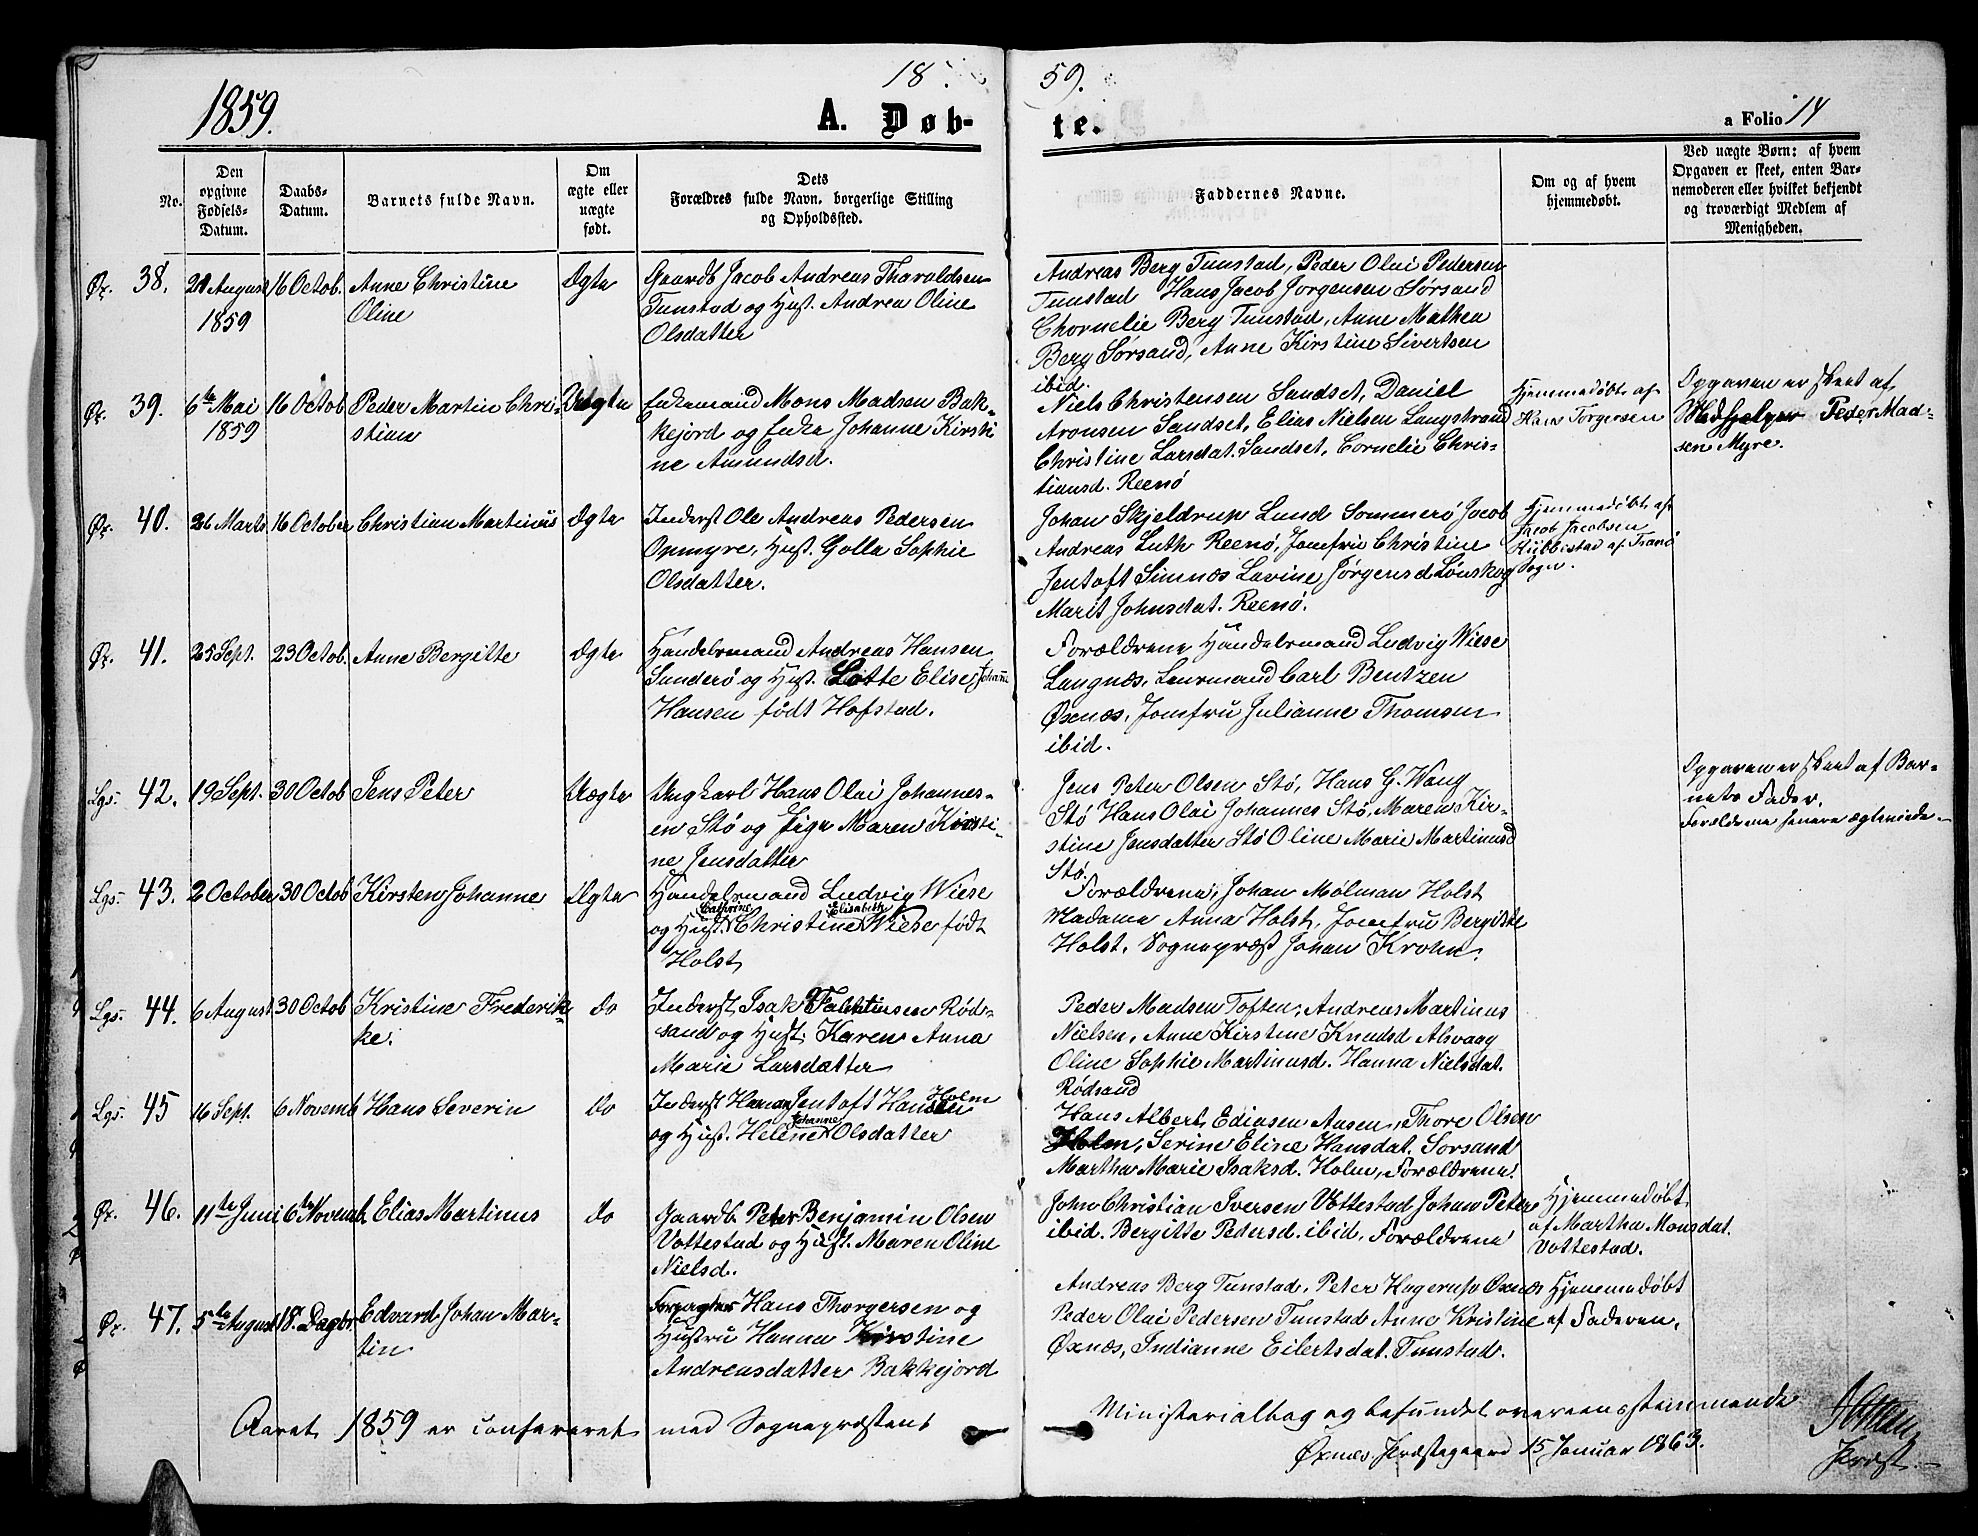 1859.
18 59.
A. Døb- te.
a Folio 14
No.
Den opgivne Fødsels-Datum.
Daabs-Datum.
Barnets fulde Navn.
Om ægte eller uægte født.
Dets Forældres fulde Navn, borgerlige Stilling og Opholdssted.
Faddernes Navne.
Om og af hvem hjemmedøbt.
Ved uægte Børn: af hvem Opgaven er skeet, enten Barnemoderen eller hvilket bekjendt og troværdigt Medlem af Menigheden.
Øx. 38. 21 August 1859
16 Octob.
Anne Christine
Oline
Ægte
Gaardb Jacob Andreas Tharaldsen
Tunstad og Hust. Andrea Oline
Olsdatter
Andreas Berg Tunstad, Peder Olai Pedersen
Tunstad Hans Jacob Jørgensen Sørsand
Chornelie Berg Tunstad, Anne Mathea
Berg Sørsand, Anne Kirstine Sivertsen
ibid.
Øx. 39. 6te Mai 1859
16 Octob
Peder Martin Chri-
stian
Uægte
Enkemand Mons Madsen Bak-
kejord og Enke Johanne Kirsti
ne Amundsd.
Niels Christensen Sandset, Daniel
Aronsen Sandset, Elias Nielsen Langstrand
Christine Larsdat. Sandset, Cornelie Chris-
tiansd. Reenø
Hjemmedøbt af
Hans Torgersen
Opgaven er skeet af
Peder Mad-
sen Myre.
Øx. 40. 26 Marts
16 October
Christian Martinus
Ægte
Inderst Ole Andreas Pedersen
Opmyre, Hust. Golla Sophie
Olsdatter.
Johan Skjeldrup Lund Sommerø Jacob
Andreas Luth Reenø, Jomfru Christine
Jentoft Simnæs Lavine Jørgensd Lønskog
Marit Johnsdat. Reenø.
Hjemmedøbt af
Jacob Jacobsen
Kubbestad af Tranø
Sogn.
Øx. 41. 25 Sept.
23 Octob.
Anne Bergitte
Ægte
Handelsmand Andreas Hansen
Sanderø og Hust. Lotte Elise Johanne
Hansen født Hofstad.
Forældrene Handelsmand Ludvig Wiese
Langnæs, Lensmand Carl Bentzen
Øxnæs, Jomfru Julianne Thomsen
ibid.
Lgs: 42. 19 Sept.
30 Octob
Jens Peter
Uægte
Ungkarl Hans Olai Johannes-
en Stø og Pige Maren Kirsti-
ne Jensdatter
Jens Peter Olsen Stø, Hans G. Wang
Stø Hans Olai Johannes Stø, Maren Kir-
stine Jensdatter Stø Oline Marie Martinusd
Stø.
Opgaven er skeet af Bar-
nets Fader.
Forældrene senere ægteviede.
Lgs: 43. 2 October
30 Octob
Kirsten Johanne
Ægte
Handelsmand Ludvig Wiese
og Hust. Cathrine Christine Elisabeth Wiese født
Holst
Forældrene, Johan Mølman Holst
Madame Anna Holst, Jomfru Bergitte
Holst. Sognepræst Johan Krohn.
Lgs: 44. 6 August
30 Octob
Kristine Frederik-
ke.
do
Inderst Isak Falktinsen Rød-
sand og Hust. Karen Anna
Marie Larsdatter
Peder Madsen Toften, Andreas Martinus
Nielsen, Anne Kirstine Knudsd Alsvaag
Oline Sophie Martinusd. Hanna Nielsdat.
Rødsand
Lgs: 45 16 Sept.
6 Novemb
Hans Severin
do
Inderst Hanan Jentoft Hansen Holm
og Hust. Helene Johanne Olsdatter
Hans Albert Ediasen Aasen, Thore Olsen
Holm, Serine Eline Hansdat. Sorsand
Martha Marie Isaksd. Holm, Forældrene.
Øx. 46. 11te Juni
6te Novemb.
Elias Martinus
do
Gaardb. Peter Benjamin Olsen
Vottestad og Hust. Maren Oline
Nielsd.
John Christian Iversen Vottestad Johan Peter
ibid. Bergitte Pedersd. ibid. Forældrene
Hjemmedøbt
af Martha Monsdat.
Vottestad.
Øx. 47. 5te August
18. Decbr.
Edvard Johan Mar-
tin
Forpagter Hans Thorgersen og
Hustru Hanna Kirstine
Andreasdatter Bakkejord
Andreas Berg Tunstad, Peter Hagerup Øxnæs
Peder Olai Pedersen Tunstad Anne Kristine
Øxnæs, Indianne Eilertsdat. Tunstad.
Hjemmedøbt
af Faderen.
Aaret 1859 er confereret med Sognepræstens
Ministerialbog og befundet overeensstemmende
Øxnes Præstegaard 15 Januar 1863.
Præst.